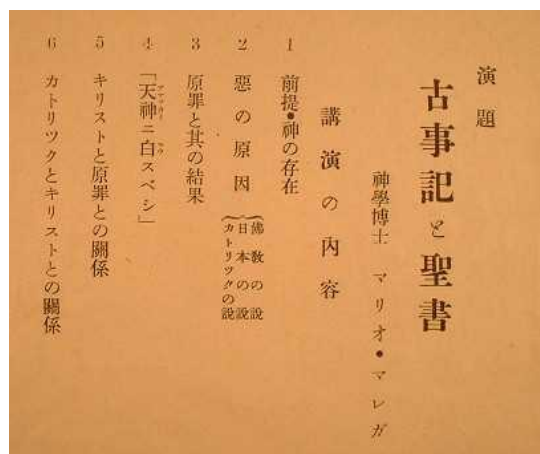 演題
古事記と聖書
神學博士 マリオ・マレガ
講演の内容
1 前提・神の存在
2 惡の原因
佛教の説
日本の説
カトリツクの説
3 原罪と其の結果
4 「天神ニ白スベシ」
5 キリストと原罪との關係
6 カトリツクとキリストとの關係